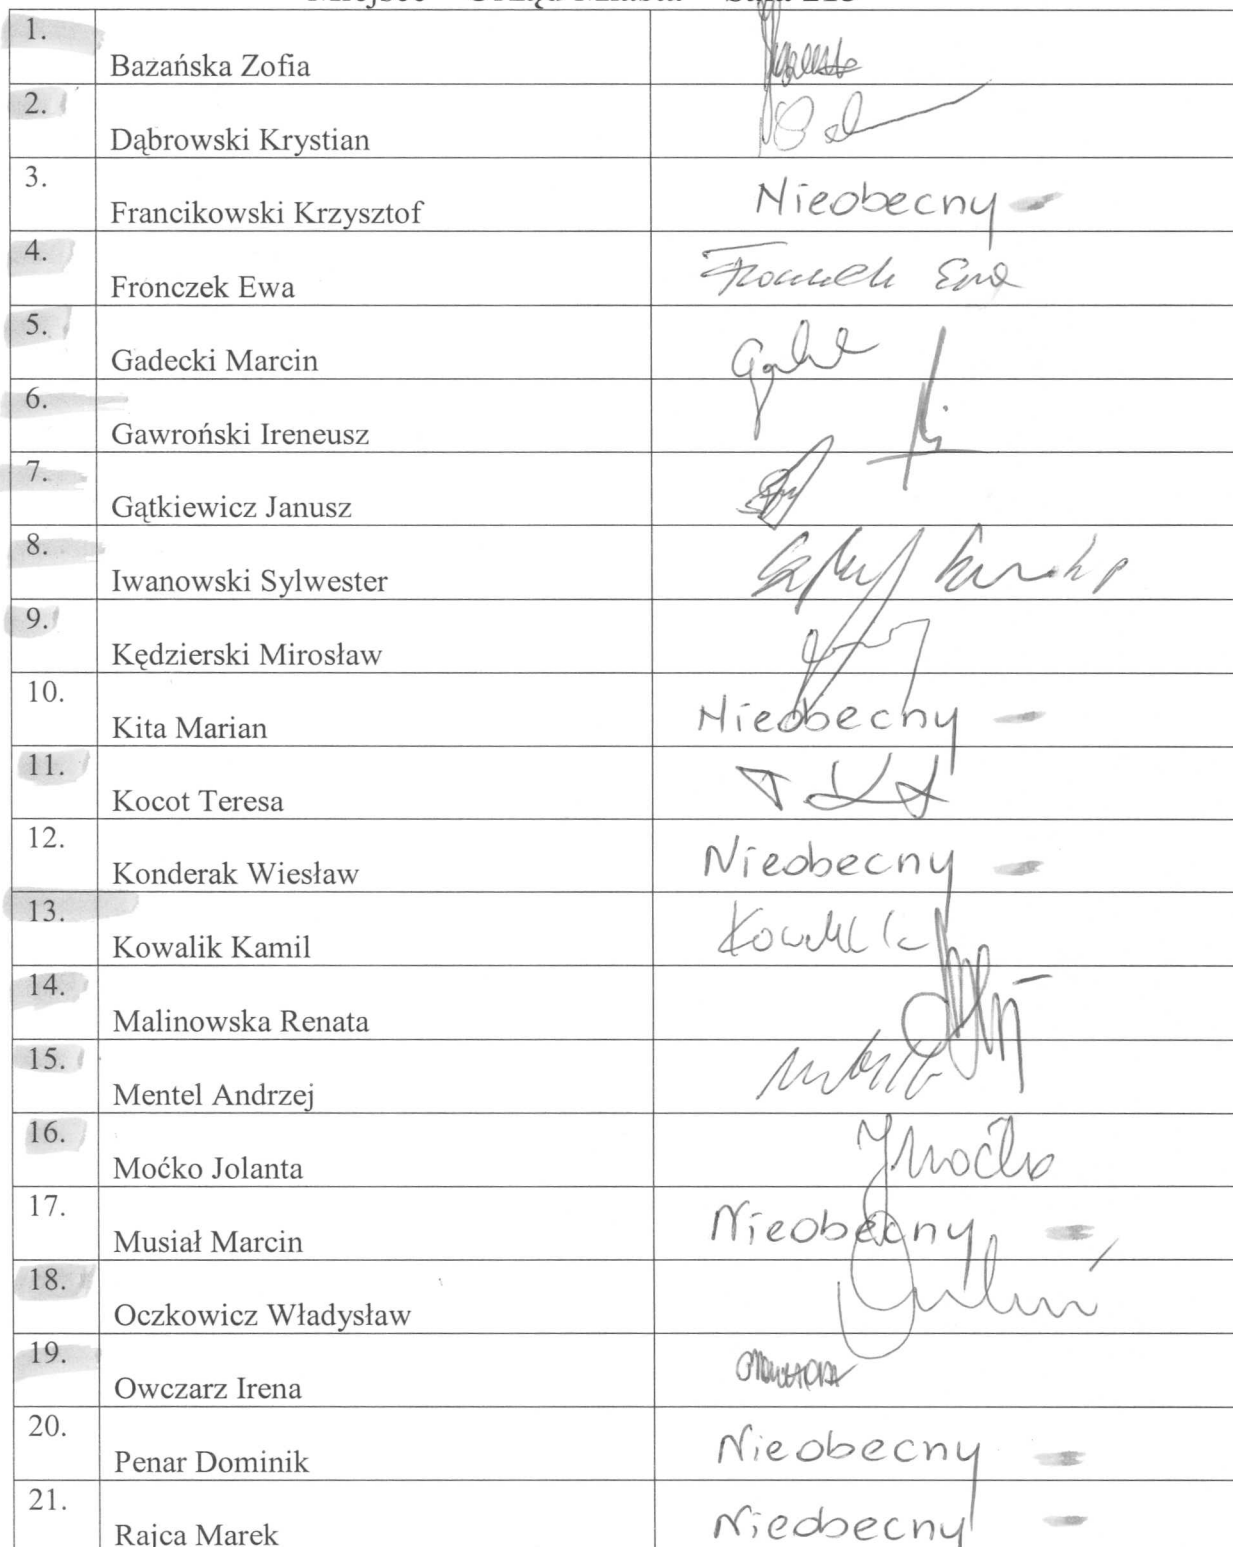 1.
Bazańska Zofia
2.
Dąbrowski Krystian
3.
Francikowski Krzysztof Nieobecny -
4.
Fronczek Ewa Fronczek Ewa
5.
Gadecki Marcin
6.
Gawroński Ireneusz
7.
Gątkiewicz Janusz
8.
Iwanowski Sylwester
9.
Kędzierski Mirosław
10.
Kita Marian Nieobecny -
11.
Kocot Teresa
12.
Konderak Wiesław Nieobecny -
13.
Kowalik Kamil Kowalik
14.
Malinowska Renata
15.
Mentel Andrzej
16.
Moćko Jolanta JMoćko
17.
Musiał Marcin Nieobecny -
18.
Oczkowicz Władysław
19.
Owczarz Irena
20.
Penar Dominik Nieobecny -
21.
Rajca Marek Nieobecny -